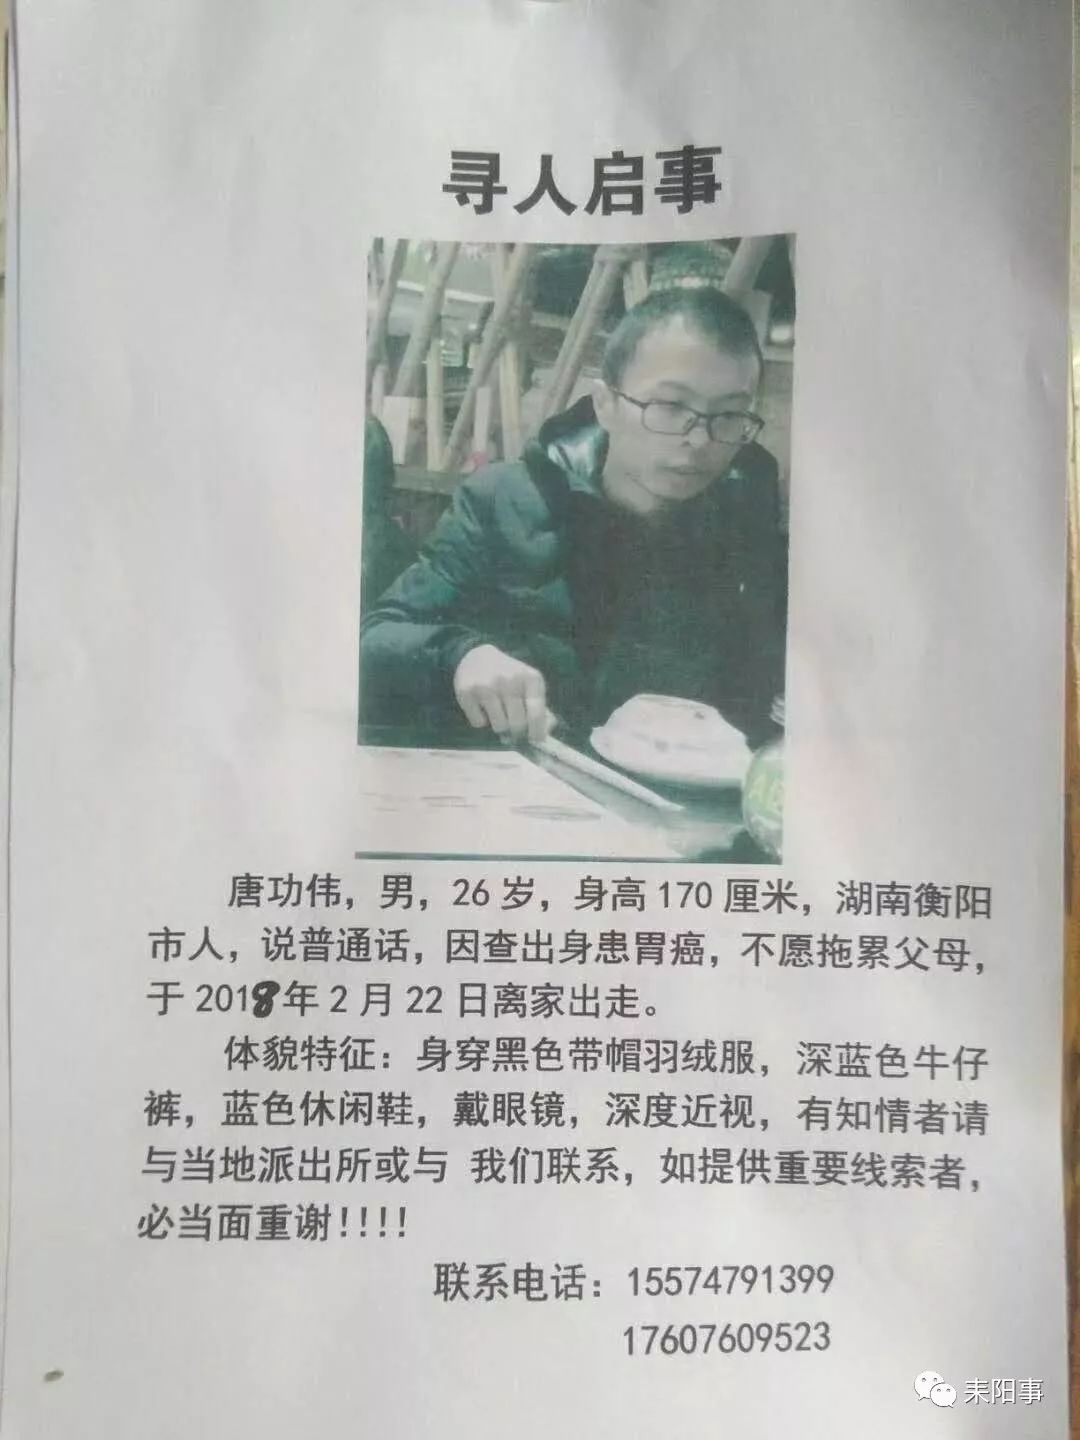 寻人启事
唐功伟，男，26岁，身高170厘米，湖南衡阳
市人，说普通话，因查出身患胃癌，不愿拖累父母，
于2018年2月22日离家出走。
体貌特征：身穿黑色带帽羽绒服，深蓝色牛仔
裤，蓝色休闲鞋，戴眼镜，深度近视，有知情者请
与当地派出所或与 我们联系，如提供重要线索者，
必当面重谢!!!!
联系电话：15574791399
17607609523
耒阳事